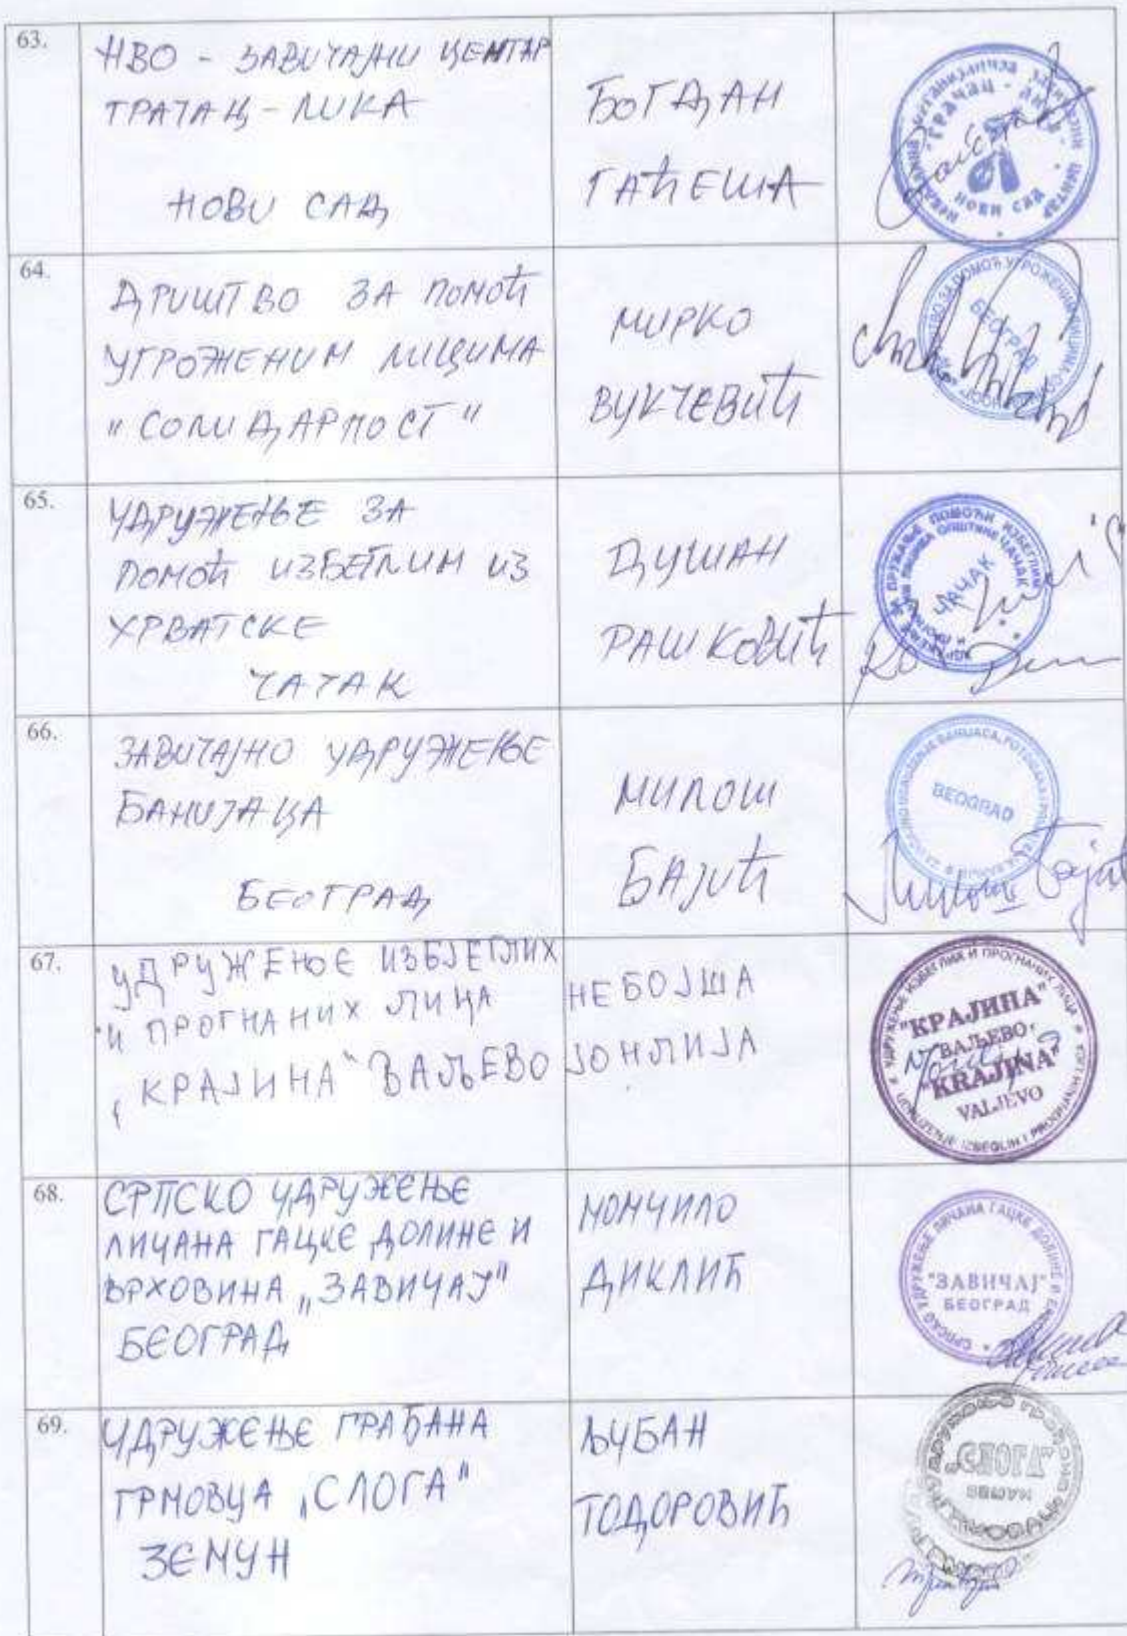 63.
НВО - ЗАВИЧАЈНИ ЦЕНТАР
ГРАЧАЦ - ЛИКА
НОВИ САД
БОГДАН
ГАЋЕША
ГРАЧАЦ - ЛИКА
НОВИ САД
64.
ДРУШТВО ЗА ПОМОЋ
УГРОЖЕНИМ ЛИЦИМА
"СОЛИДАРНОСТ"
МИРКО
ВУКЧЕВИЋ
БЕОГРАД
65.
УДРУЖЕЊЕ ЗА
ПОМОЋ ИЗБЕГЛИМ ИЗ
ХРВАТСКЕ
ЧАЧАК
ДУШАН
РАШКОВИЋ
ЧАЧАК
66.
ЗАВИЧАЈНО УДРУЖЕЊЕ
БАНИЈАЦА
БЕОГРАД
МИЛОШ
БАЈИЋ
BEOGRAD
Милош Бајић
67.
УДРУЖЕЊЕ ИЗБЈЕГЛИХ
И ПРОГНАНИХ ЛИЦА
„КРАЈИНА" ВАЉЕВО
НЕБОЈША
ЈОНЛИЈА
УДРУЖЕЊЕ ИЗБЕГЛИХ И ПРОГНАНИХ ЛИЦА
"КРАЈИНА"
ВАЉЕВО
"KRAJINA"
VALJEVO
68.
СРПСКО УДРУЖЕЊЕ
ЛИЧАНА ГАЦКЕ ДОЛИНЕ И
ВРХОВИНА „ЗАВИЧАЈ"
БЕОГРАД
МОМЧИЛО
ДИКЛИЋ
СРПСКО УДРУЖЕЊЕ ЛИЧАНА ГАЦКЕ ДОЛИНЕ И
"ЗАВИЧАЈ"
БЕОГРАД
69.
УДРУЖЕЊЕ ГРАЂАНА
ГРМОВЦА „СЛОГА"
ЗЕМУН
ЉУБАН
ТОДОРОВИЋ
"СЛОГА"
ЗЕМУН